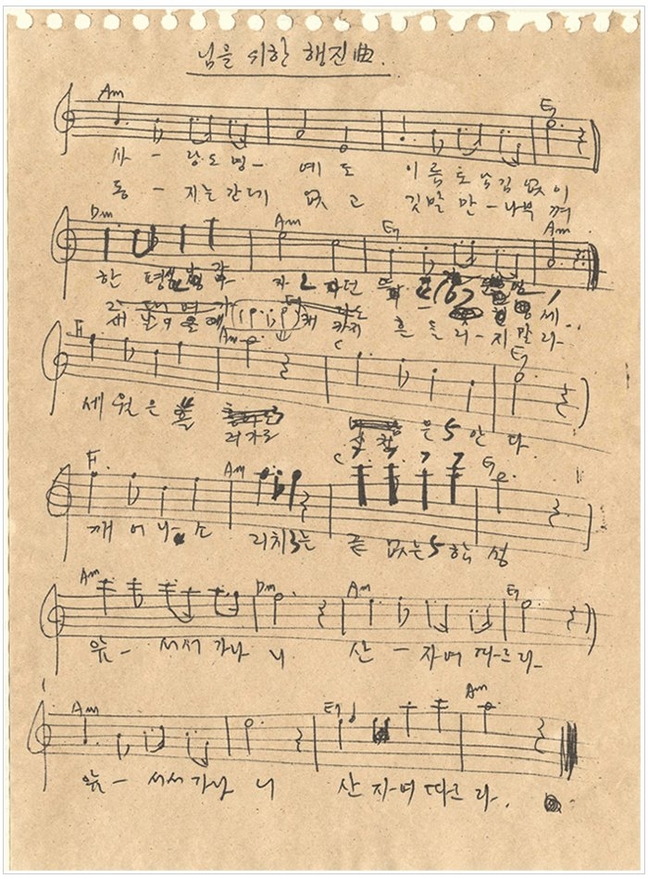 님을 위한 행진曲.
Am E7
사 - 랑도 명- 예도 이름도 남김 없이
동 - 지는 간데 없고 깃발 만-나부껴
Dm Am E7 Am
한 평생 자던 세,
새 날이 올때 까지 흔들리-지말라..
F Am C E7
세월은 흘
러가도 산천은 안다
F Am C E7
깨어나 소리치는 끝 없는 함성
Am Dm Am E7
앞- 서서 가나니 산 - 자여 따르라-
Am E7 Am
앞- 서서 가나니 산 자여 따르라.